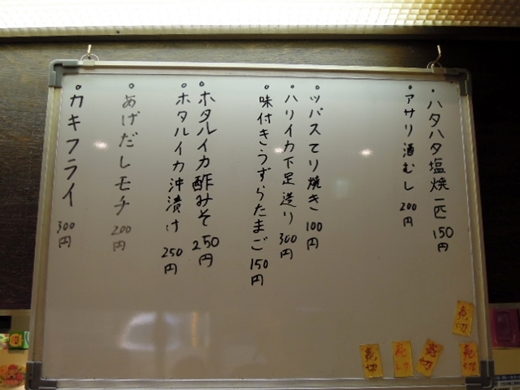 ・ハタハタ塩焼一匹 150円
・アサリ酒むし 200円
・ツバス てり焼き 100円
・ハリイカ下足造り 300円
・味付きうずらたまご 150円
・ホタルイカ酢みそ 250円
・ホタルイカ沖漬け 250円
・あげだしモチ 200円
・カキフライ 300円
売切
売切
売切
売切
売切